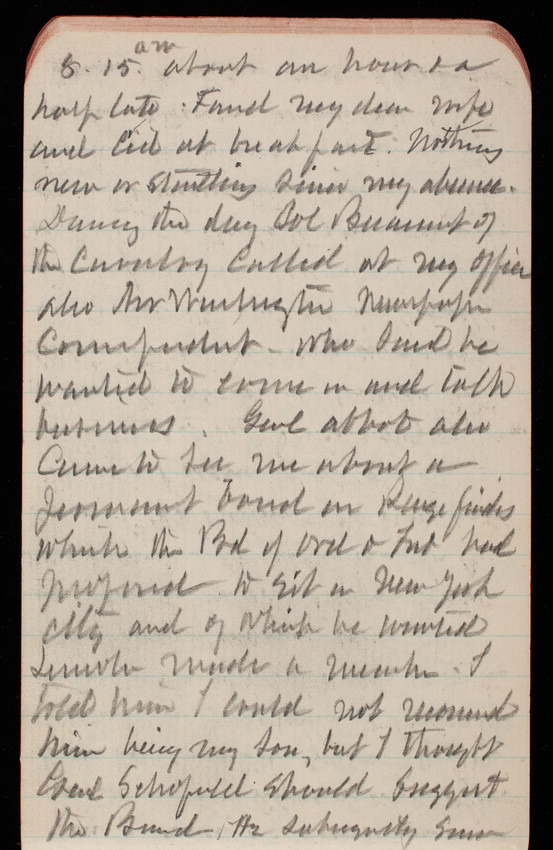 8.15 am about an hour & a
half late. Found my dear wife
and Cid at breakfast. Nothing
new or startling since my absence.
During the day Col Beaumont of
the Cavalry Called at my office
also Mr Washington Newspaper
Correspondent - who said he
wanted to come in and talk
business. Genl Abbot also
Came to see me about a
permanent board on Range finders
which the Bd of Ord & Fort had
proposed to sit in New York
City and of which he wanted
Lincoln made a member. I
told him I could not recommend
him being my son, but I thought
Genl Schofield should suggest
the Board. He subsequently